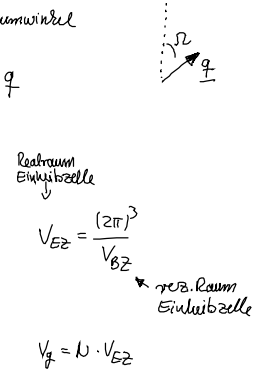 umwinkel
Ω
q
q
Realraum
Einheitszelle
V_EZ = (2π)³ / V_BZ
rez. Raum
Einheitszelle
V_g = N · V_EZ